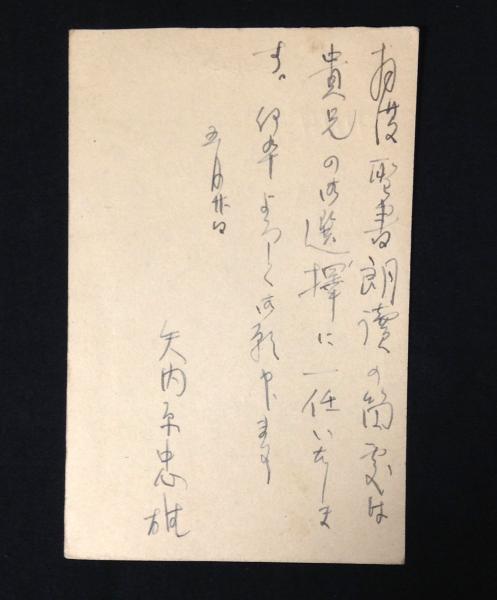 拝復 聖書朗讀の箇處は
貴兄の御選擇に一任いたしま
す。何卒よろしく御願申します
五月廿日
矢内原忠雄